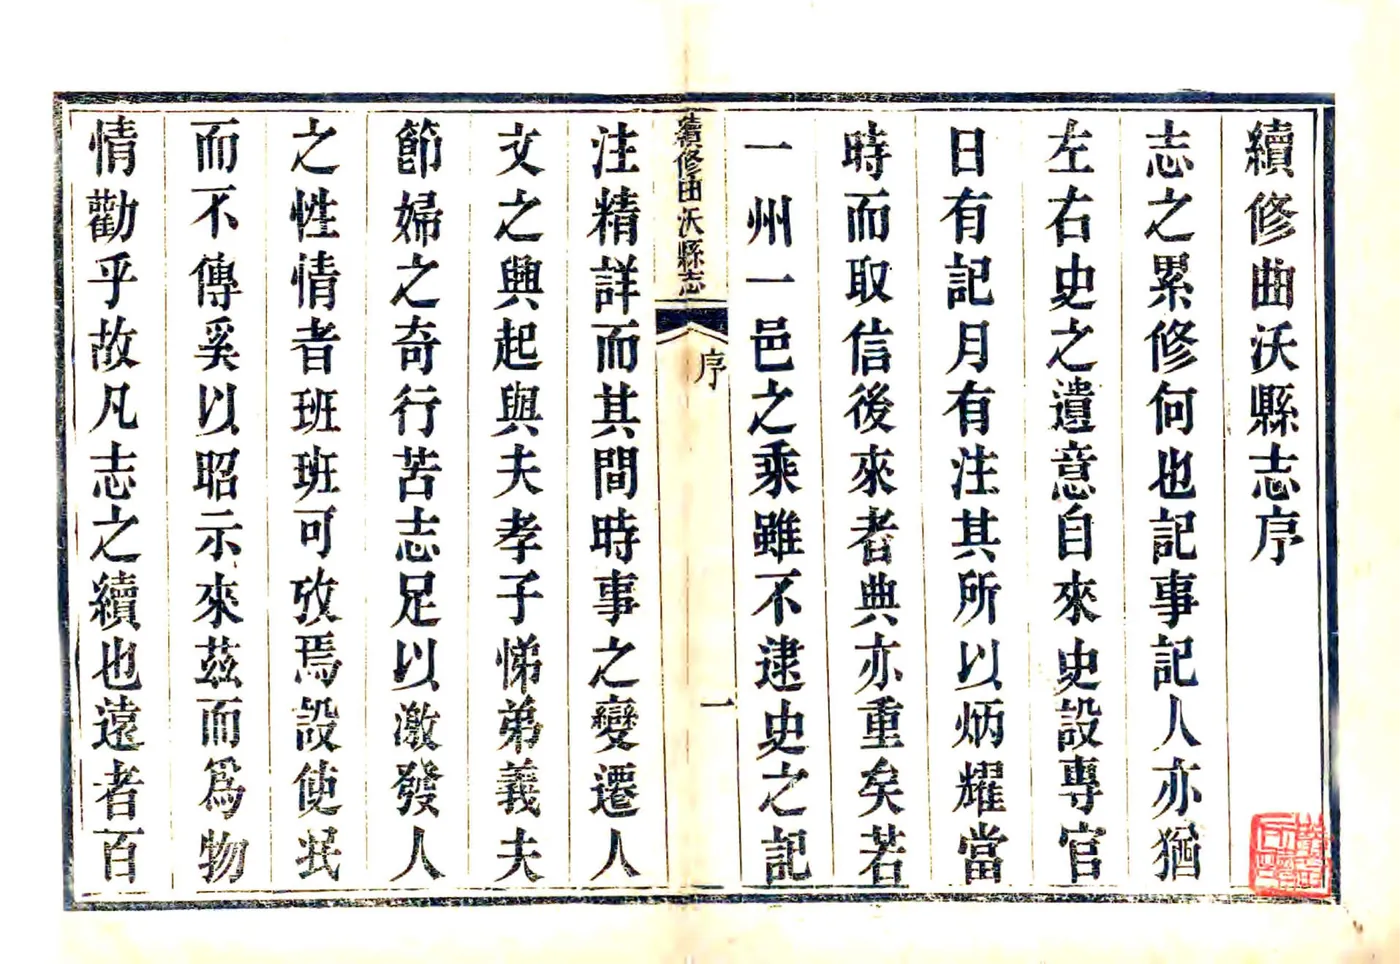 續修曲沃縣志序
志之累修何也記事記人亦猶
左右史之遺意自來史設專官
日有記月有注其所以炳耀當
時而取信後來者典亦重矣若
一州一邑之乘雖不逮史之記
續修曲沃縣志
序
一
注精詳而其間時事之變遷人
文之興起與夫孝子悌弟義夫
節婦之奇行苦志足以激發人
之性情者班班可攷焉設使泯
而不傳奚以昭示來茲而為物
情勸乎故凡志之續也遠者百